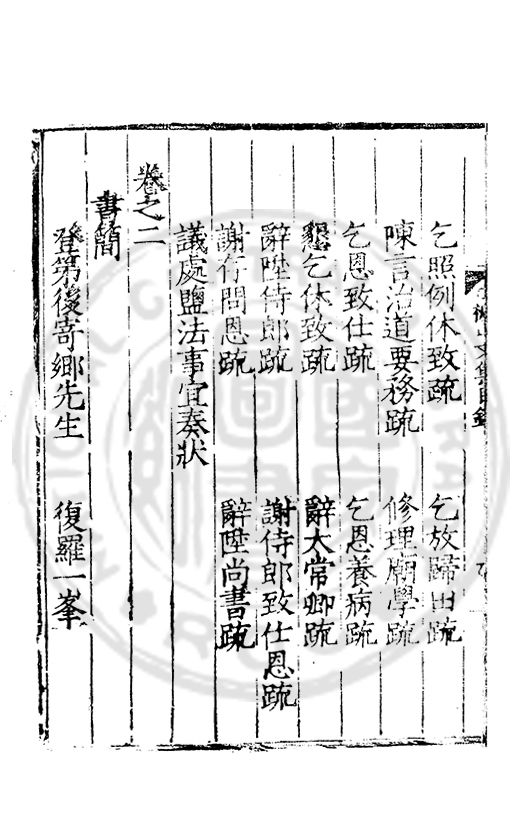 乞照例休致疏　乞放歸田疏
陳言治道要務疏　修理廟學疏
乞恩致仕疏　乞恩養病疏
懇乞休致疏　辭太常卿疏
辭陞侍郎疏　謝侍郎致仕恩疏
謝存問恩疏　辭陞尚書疏
議處鹽法事宜奏狀
卷之二
書簡
登第後寄鄉先生　復羅一峯